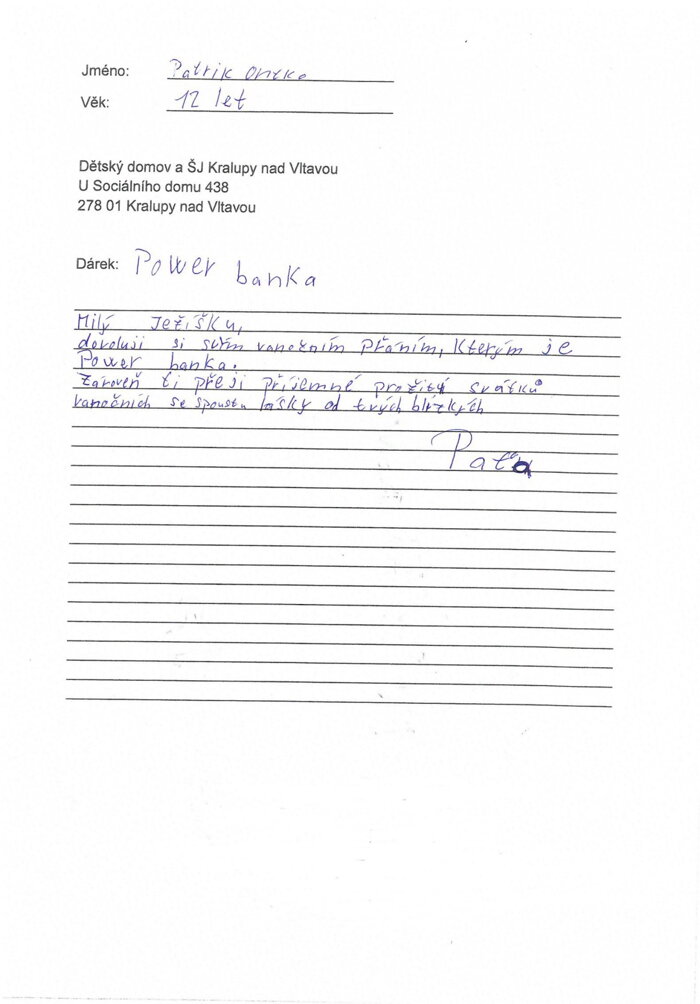 Jméno: Patrik
Věk: 12 let
Dětský domov a ŠJ Kralupy nad Vltavou
U Sociálního domu 438
278 01 Kralupy nad Vltavou
Dárek: Power banka
Milý Ježíšku,
dovoluji si svým vanočním přáním, kterým je
Power banka.
Zároveň ti přeji příjemné prožití svátků
vanočních se spoustu lásky od tvých blízkých
Paťa